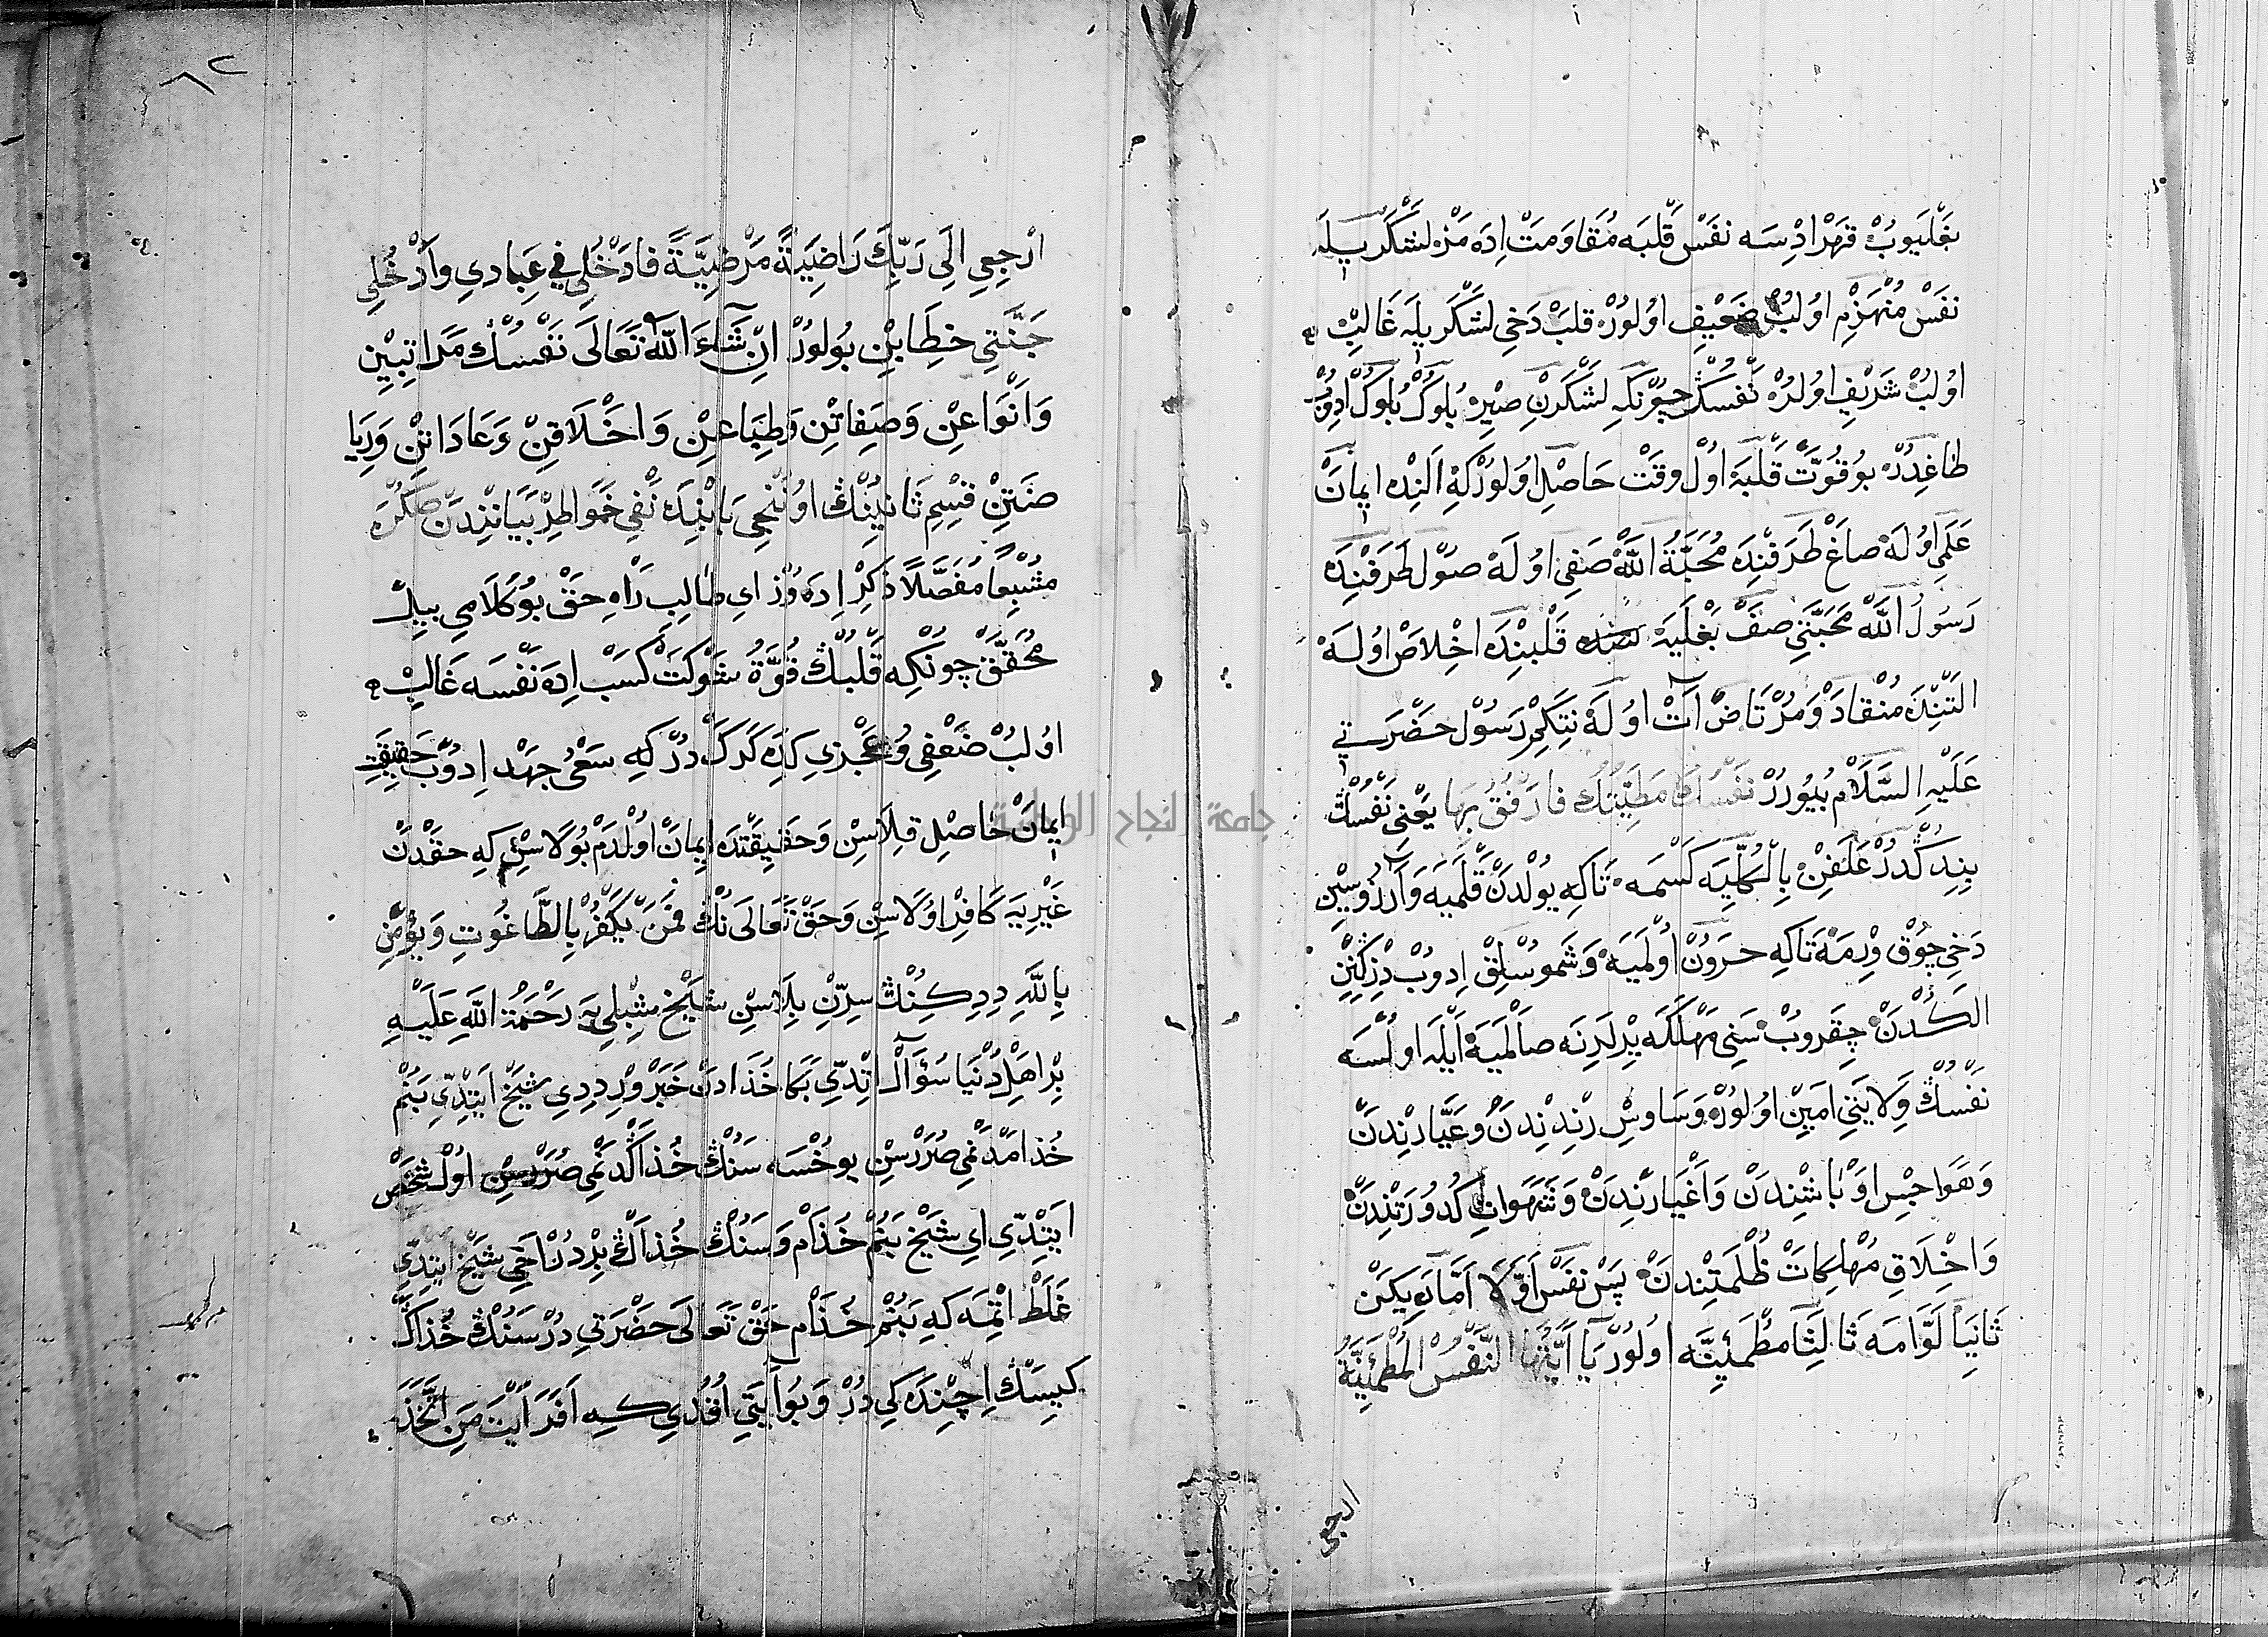 بَغْلَيوُبْ قَهْرْ ادِسَه نَفَسْ قَلْبَه مُقَاوَمَتْ اِدَه مَزْ لشَكَّرْ يلَه
نَفَسْ مُنْهَزِمْ اوُلُبْ ضَعْيِفْ اوُلوُرْ قلبْ دَخِى لَشَكَّرْ يلَه غَالِبْ
اوُلُبْ شَرَيْفْ اوُلُرْ نَفْسُكْ چونكه لشَكَرنْ صيِرِ بُلوُكْ بُلوُكْ ادوُبْ
طاغِدُرْ بوُ قُوَّتْ قَلْبَه اوُلْ وقَتْ حَاصْلِ اوُلوُرْكَه اَلَنْده ايمانْ
عَلَمِى اوُلَه صاغْ طَرَفنِْدَه مُحَبَّةُ اللّٰه صَفِى اوُلَه صوُلْ طَرَفنِْدَه
رَسُولُ اللّٰه مَحَبَّتِى صَفْ بَغْلَيَه قَلْبنِْدَه اخْلاصْ اوُلَه
التَنْدَه مُنْقَادْ وَمُرْتَاضْ اَتْ اوُلَه نتَكِمْ رَسُولْ حَضْرَتِى
عَلَيْهِ السَّلَامْ بُيُورُرْ نَفْسُكَ مَطِيَّتُكَ فَارْفُقْ بِهَا يَعْنِى نَفْسُكْ
بِنِدكُّدُرْ عَلَفِنْ بِالْكُلِّيَه كَسْمَه تَاكِه يوُلْدَنْ قَلْمَيَه وَآرْزوُسيِنِ
دَخِى چوُقْ وِرْمَه تَاكِه حَرَوُنْ اوُلْمَيَه وَشَموُسْلِقْ اِدوُبْ دزكنين
الكُدَنْ چِقَروُبْ سَنِى مَهْلَكَه يرْلَرِنَه صَالْمَيَه اَيْلَه اوُلْسَه
نَفْسُكْ وَلَايَتِى اَمِينْ اوُلوُرْ وَسَاوِسْ رندِندنْ وعَيَّارنْدَنْ
وَهَوَاجِسْ اوَبَاشنْدَنْ وَاَغْيَارنِدَنْ وَشَهَوَاتِ كُدوُرَتنِْدَنْ
وَاخْلَاقِ مُهْلِكَاتْ ظُلْمَتِنْدنَ پَسْ نَفَسْ اَوَّلَا اَمَّارَه يكَنْ
ثَانِيًا لَوَّامَه ثَالِثًا مُطْمَئِنَّه اوُلوُرْ يَا اَيَّتُهَا النَّفْسُ الْمُطْمَئِنَّةُ
ارجعى
٦٢
ارْجِعِى اِلَى رَبِّكِ رَاضِيَةً مَرْضِيَّةً فَادْخُلِى فِى عِبَادِى وَادْخُلِى
جَنَّتِى خِطَابِنْ بُولوُرْ اِنْ شَآءَ اللّٰه تَعَالَى نَفْسُكْ مَرَاتِبيِنْ
وَاَنْوَاعِنْ وَصِفَاتِنْ وَطِبَاعِنْ وَاخْلَاقِنْ وَعَادَاتِنْ وَرِيَا
ضَتِنْ قِسْمِ ثَانيِنُكْ اوُچُنْجِى بَابنِدَه نَفِى خَوَاطِرْ بَيَاننِْدنَ صُكْرَه
مُشْبِعًا مُفَصَّلًا ذَكِرْ اِدَه وُزْ اى طَالِبِ رَاهِ حَقْ بوُ كَلَامى بيلْ
مُحَقَّقْ چونَكِه قَلْبُكْ قُوَّةُ شَوْكَتْ كَسْبْ اِدَه نَفْسَه غَالِبْ
اوُلُبْ ضَعْفِى وُعَجْزِى كِدَه كَرَكْدُرْ كِه سَعْىُ جهَدْ اِدوُبْ حَقيِقَتِ
ايمَانْ حَاصْلِ قِلَاسِنْ وَحَقيِقَتدَه ايمَانْ اوُلْدَمْ بوُلَاسِنْ كِه حقْدَنْ
غَيْرِيَه كَافِرْ اوُلَاسِنْ وَحَقْ تَعَالَىنُكْ فَمَنْ يَكْفُرْ بِالطَّاغُوتِ وَيُؤْمِنْ
بِاللّٰهِ دِدِكِنُكْ سِرِّنْ بِلَاسِنْ شَيْخْ شِبْلىِيَه رَحْمَةُ اللّٰهِ عَلَيْهِ
بْرْ اهَلِ دُنْيَا سُؤَالْ اتْدِّى بَكَا خُذَادنْ خَبَرْ وِرْ دِدِى شَيْخْ ايتدِّى بَنُمْ
خُذامْدَنْمِى صُرَرْسِنْ يوُخْسَه سَنُكْ خُذاكْدَنمِى صُرَرْسِنْ اوُلْ شَخْصْ
ايتْدِّى اى شَيْخْ بَنُمْ خُذَامْ وَسَنُكْ خُذاَكْ بِرْدُرْ اَخِى شَيْخْ ايتدِّى
غَلَطْ اتْمَه كِه بَنُمْ خُذَامْ حَقْ تَعَالَى حَضْرَتِى دُرْ سَنُكْ خُذاكْ
كيسَكْ اِچِنْدَه كِى دُرْ وَبوُ آيَتِى اُقُدِى كِه اَفَرَاَيْتَ مَنِ اتَّخَذَ